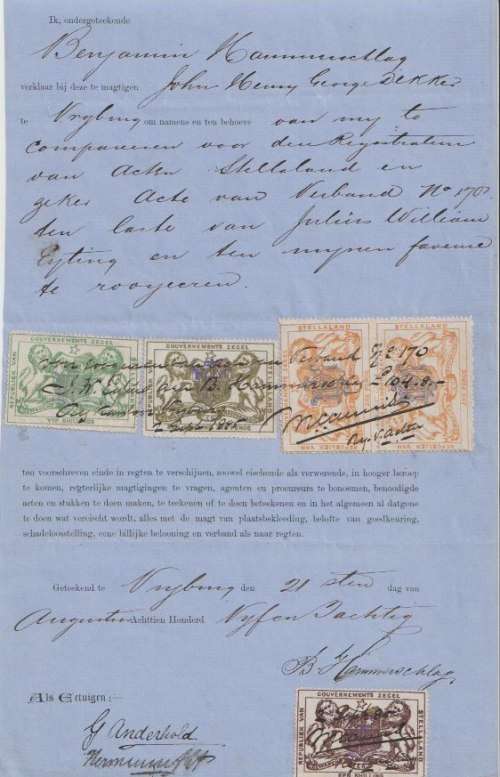 Ik, ondergeteekende
Benjamin Hammerschlag
verklaar bij deze te magtigen John Henry George Dekker
te Vryburg om namens en ten behoeve van my te
compareeren voor den Registrateur
van Acten Stellaland en
zeker Acte van Verband No 170
ten laste van Julius William
Eyting en ten mynen faveure
te roogeeren.
GOUVERNEMENTS ZEGEL
GOUVERNEMENTS ZEGEL
STELLALAND
Verband
170
B. Hammerschlag £104.8.-
Vryburg
VYF SHILLINGS
ten voorschreven einde in regten te verschijnen, zoowel eischende als verwerende, in hooger beroep
te komen, regterlijke magtigingen te vragen, agenten en procureurs te benoemen, benoodigde
acten en stukken te doen maken, te teekenen of te doen beteekenen en in het algemeen al datgene
te doen wat vereischt wordt, alles met de magt van plaatsbekleeding, belofte van goedkeuring,
schadeloosstelling, eene billijke belooning en verband als naar regten.
Geteekend te Vryburg den 21 sten dag van
Augustus Achttien Honderd Vyf en Tachtig
B Hammerschlag
Als Getuigen:—
GOUVERNEMENTS ZEGEL
REPUBLIEK VAN
STELLALAND
G Anderhold